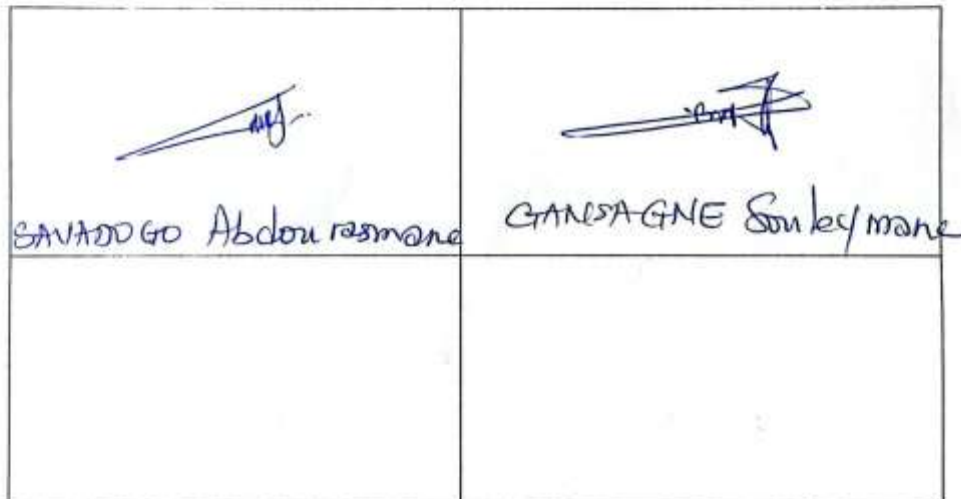 SAVADOGO Abdourasmane
GANSAGNE Souleymane